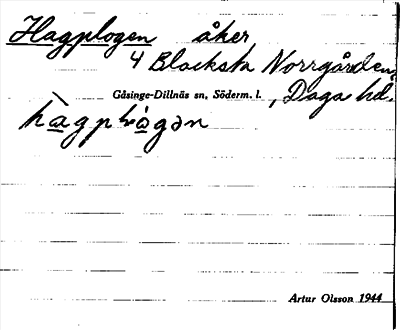 Hagplogen åker
4 Blacksta Norrgården,
Gåsinge-Dillnäs sn, Söderm. l., Daga hd.
Artur Olsson 1944